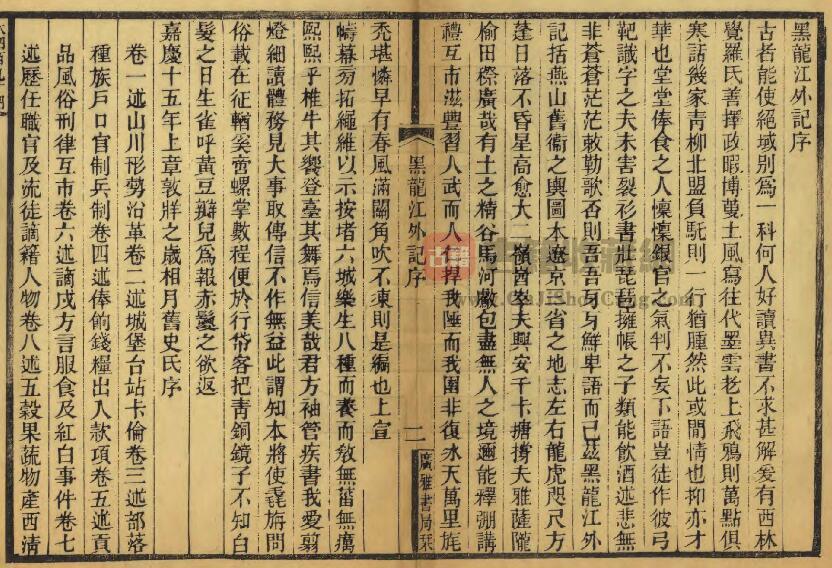 黑龍江外記序
古者能使絕域別爲一科何人好讀異書不求甚解爰有西林
覺羅氏善擇政暇博蒐土風寫往代墨雲老上飛鴉則萬點俱
寒話幾家靑柳北盟負駝則一行猶腫然此或閒情也抑亦才
華也堂堂俸食之人懍懍銀官之氣判不妄下語豈徒作彼弓
靶識字之夫未害裂衫書壯琵琶擁帳之子類能飲酒述悲無
非蒼蒼茫茫敕勒歌否則吾吾身身鮮卑語而已茲黑龍江外
記括燕山舊衞之輿圖本遼京行省之地志左右龍虎咫尺方
蓬日落不昏星高愈大二嶺皆奚夫興安千卡塘撐夫雅薩隴
楡田檾廣哉有土之精谷馬河嚴包盡無人之境邇能釋弸講
禮互市滋豐習人武而人捍我陲而我圉非復冰天萬里旄
禿堪憐早有春風滿關角吹不凍則是編也上宣
幬幕㫄拓繩維以示按堵六城樂生八種而養而敎無菑無癘
熙熙乎椎牛其饗登臺其舞焉信美哉君方袖管疾書我愛翦
燈細讀體務見大事取傳信不作無益此謂知本將使毳旃問
俗載在征輶奚啻螺掌數程便於行帒客把靑銅鏡子不知白
髮之日生雀呼黃豆瓣兒爲報赤鬉之欲返
嘉慶十五年上章敦牂之歲相月舊史氏序
卷一述山川形勢沿革卷二述城堡台站卡倫卷三述部落
種族戶口官制兵制卷四述俸餉錢糧出入款項卷五述貢
品風俗刑律互市卷六述謫戍方言服食及紅白事件卷七
述歷任職官及流徒謫籍人物卷八述五穀果蔬物產西淸
黑龍江外記序
二
廣雅書局栞
古籍